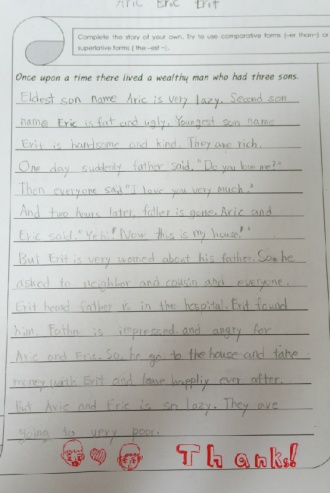 Aric Eric Erit
Complete the story of your own. Try to use comparative forms (-er than~) or
superlative forms (the -est ~).
Once upon a time there lived a wealthy man who had three sons.
Eldest son name Aric is very lazy. Second son
name Eric is fat and ugly. Youngest son name
Erit is handsome and kind. They are rich.
One day suddenly father said, "Do you love me?"
Then everyone said "I love you very much."
And two hours later, father is gone. Aric and
Eric said. "Yeh! Now this is my house!"
But Erit is very worried about his father. So, he
asked to neighbor and cousin and everyone.
Erit heard father is in the hospital. Erit found
him. Father is impressed and angry for
Aric and Eric. So, he go to the house and take
money with Erit and happily ever after.
But Aric and Eric is so lazy. They are
going to very poor.
Thanks!